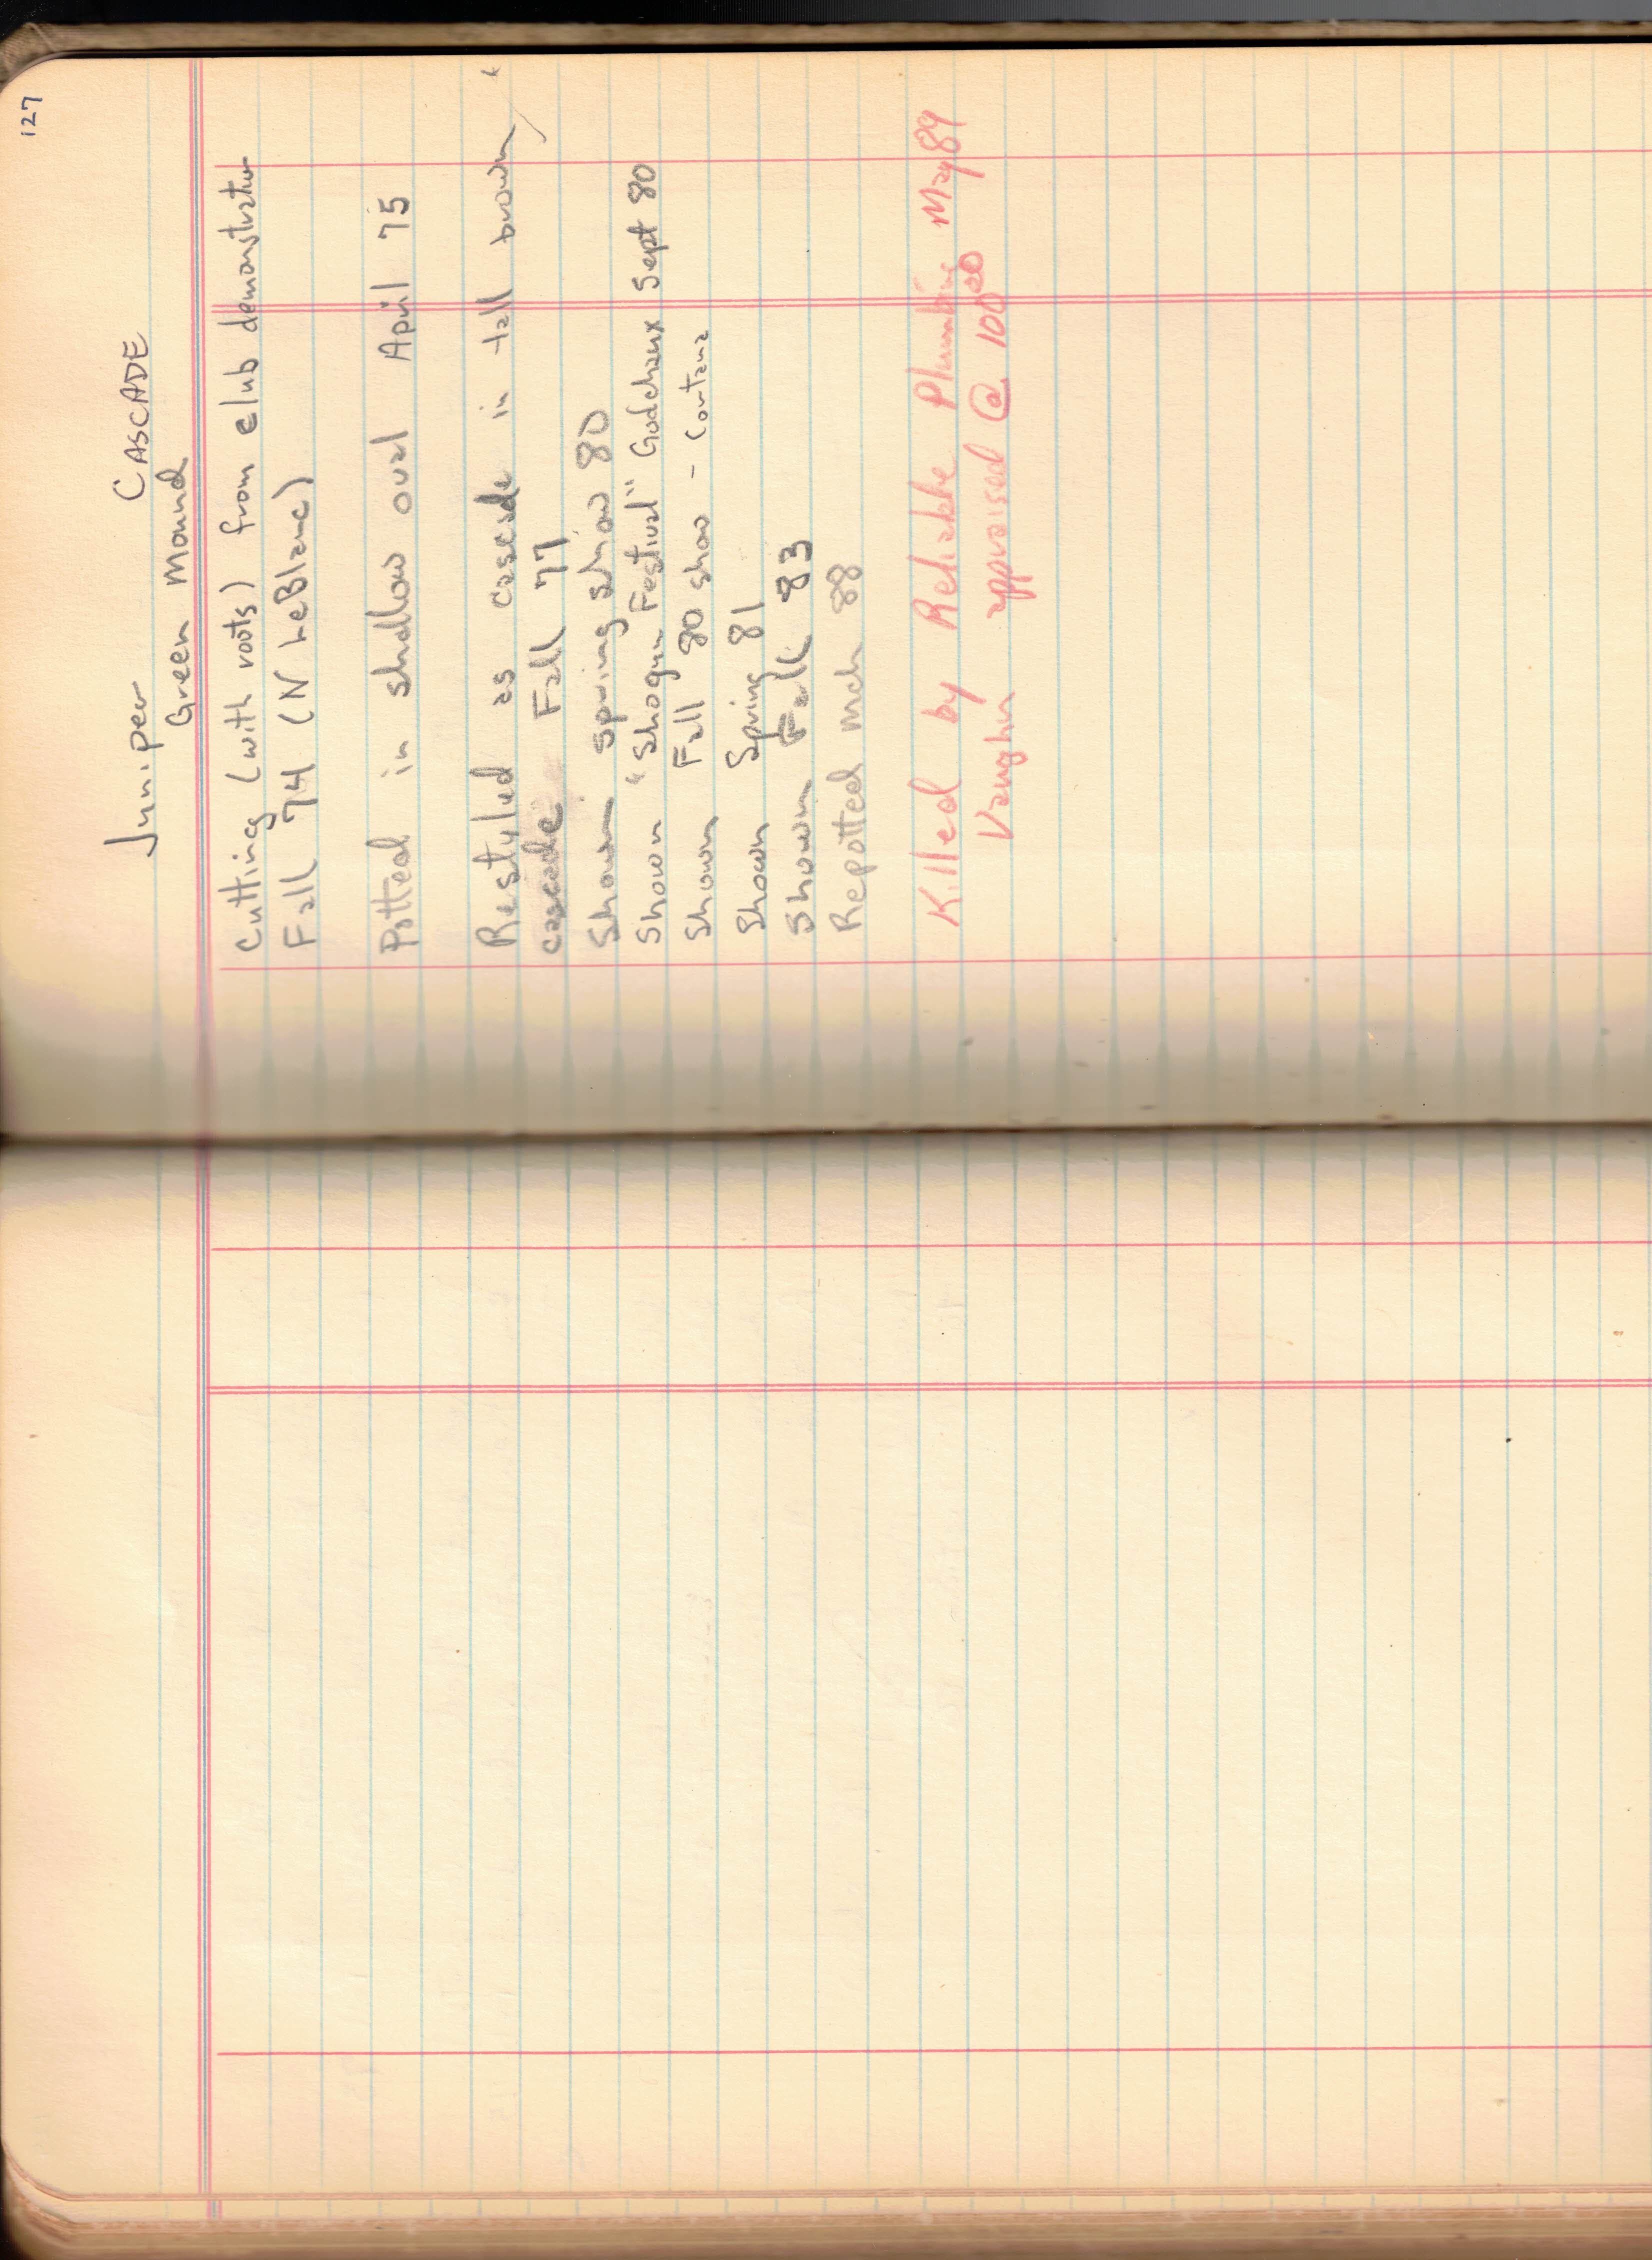 127
Juniper CASCADE
Green Mound
Cutting (with roots) from club demonstration
Fall 74 (N LeBlanc)
Potted in shallow oval April 75
Restyled as cascade in tall brown
cascade Fall 77
Shown spring show 80
Shown "Shogun Festival" Godchaux Sept 80
Shown Fall 80 show -
Shown Spring 81
Shown Fall 83
Repotted Mch 88
Killed by Reliable Plumbing May 89
Vaughn appraised @ 100⁰⁰